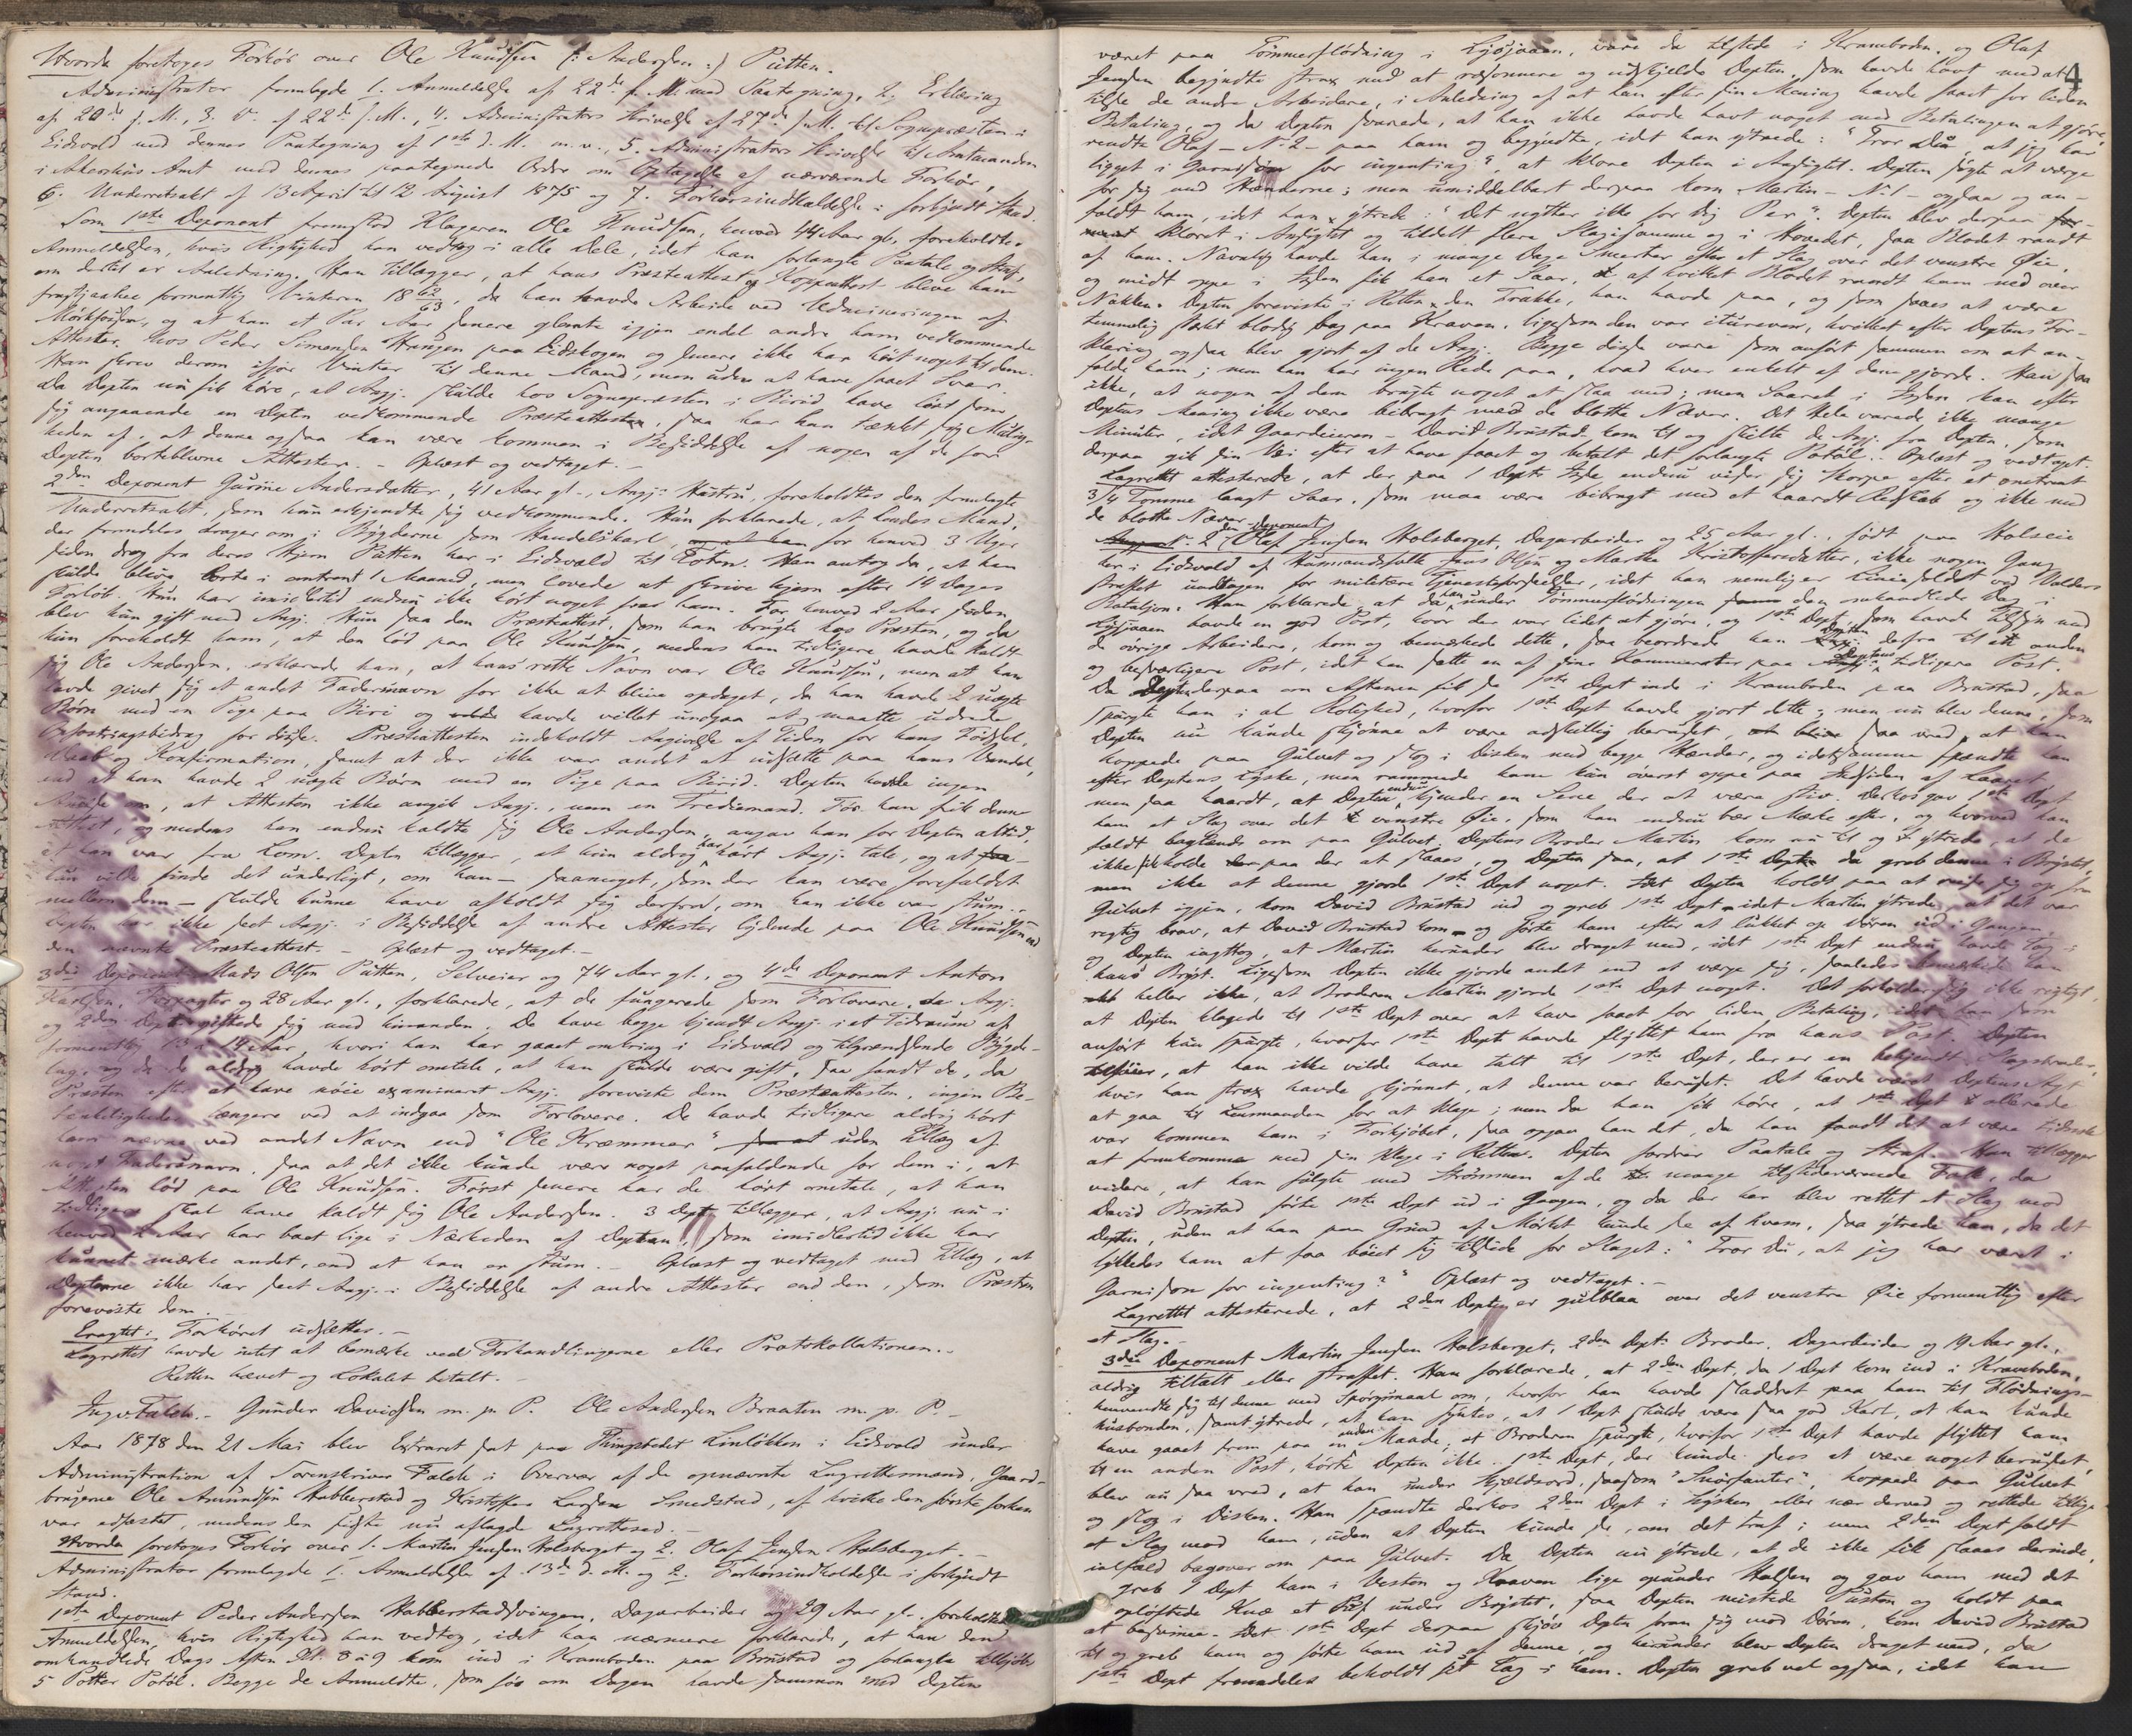 Hvorda foretoges Forhör over Ole Knudsen (: Andersen :) Putten.
Administrator fremlagde 1. Anmeldelse af 22de f. M. med Paategning, 2. Erklæring
af 20de f. M., 3. D. af 22de f. M., 4. Administrators Skrivelse af 27de f. M. til Sognepræsten i
Eidsvold med dennes Paategning af 1ste d. M. m. v., 5. Administrators Skrivelse til Amtmanden
i Akershus Amt med dennes paategnede Ordre om Optagelse af nærværende Forhör,
6. Underretsakt af 13 April til 12 August 1875 og 7. Forhörsindkaldelse i forkyndt Stand.
Som 1ste Deponent fremstod Klageren Ole Knudsen, henved 44 Aar gl. foreholdtes
Anmeldelsen, hvis Rigtighed han vedtog i alle Dele, idet han forlangte Paatale og Straf,
om dertil er Anledning. Han tillægger, at hans Præsteattest og Koppeattest bleve ham
frastjaalne formentlig Vinteren 1862/63, da han havde Arbeide ved Udmineringen af
Mörkfossen, og at han et Par Aar senere glemte igjen endel andre ham vedkommende
Attester hos Peder Simensen Strengen paa Eidskogen og senere ikke har hört noget til dem.
Han skrev derom ifjor Vinter til denne Mand, men uden at have faaet Svar.
Da Depten nu fik höre, at Angj. skulde hos Sognepræsten i Birid have löst sem
sig angaaende en Depten vedkommende Præsteattest, saa har han tænkt sig Mulig-
heden af, at denne ogsaa kan være kommen i Besiddelse af nogen af de for
Depten bortblevne Attester. - Oplæst og vedtaget. -
2den Deponent Gurine Andersdatter, 41 Aar gl., Angj.s Hustru, foreholdtes den fremlagte
Underretsakt, som hun erkjendte sig vedkommende. Hun forklarede, at hendes Mand,
der fremdeles drager om i Bygderne som Handelskarl, for henved 3 Uger
siden drog fra deres Hjem Putten her i Eidsvold til Toten. Han antog da, at han
skulde blive borte i omtrent 1 Maaned, men lovede at skrive hjem efter 14 Dages
Forlöb. Hun har imidlertid endnu ikke hört noget fra ham. For henved 2 Aar siden
blev hun gift med Angj. Hun saa den Præsteattest, som han brugte hos Præsten, og da
hun foreholdt ham, at den löd paa Ole Knudsen, medens han tidligere havde kaldt
sig Ole Andersen, erklærede han, at hans rette Navn var Ole Knudsen, men at han
havde givet sig et andet Fadersnavn for ikke at blive opdaget, da han havde 2 uægte
Börn med en Pige paa Biri og havde villet undgaa at maatte udrede
Opfostringsbidrag for disse. Præsteattesten indeholdt Angivelse af Tiden for hans Födsel,
Daab og Konfirmation, samt at der ikke var andet at udsætte paa hans Vandel,
end at han havde 2 uægte Börn med en Pige paa Birid. Depten havde ingen
Anelse om, at Attesten ikke angik Angj., men en Trediemand. För han fik denne
Attest, og medens han endnu kaldte sig Ole Andersen, angav han for Depten altid,
at han var fra Lom. Depten tillægger, at hun aldrig har hört Angj. tale, og at
hun vilde finde det underligt, om han - saameget, som der kan være forefaldet
mellem dem - skulde kunne have afholdt sig derfra, om han ikke var stum.
Depten har ikke seet Angj. i Besiddelse af andre Attester lydende paa Ole Knudsen end
den nævnte Præsteattest. - Oplæst og vedtaget. -
3die Deponent Mads Olsen Putten, Selveier og 74 Aar gl., og 4de Deponent Anton
Karlsen, Forpagter og 28 Aar gl., forklarede, at de fungerede som Forlovere, da Angj.
og 2den Dept giftede sig med hinanden. De have begge kjendt Angj. i et Tidsrum af
formentlig 13 a 14 Aar, hvori han har gaaet omkring i Eidsvold og tilgrændsende Bygde-
lag, og da de aldrig havde hört omtale, at han skulde være gift, saa fandt de, da
Præsten efter at have nöie examineret Angj. foreviste dem Præsteattesten, ingen Be-
tænkeligheder længere ved at indgaa som Forlovere. De havde tidligere aldrig hört
ham nævne ved andet Navn end "Ole Kræmmer" uden Tillæg af
noget Fadersnavn, saa at det ikke kunde være noget paafaldende for dem i, at
Attesten löd paa Ole Knudsen. Först senere har de hört omtale, at han
tidligere skal have kaldt sig Ole Andersen. 3 Dept tillægger, at Angj. nu i
henved 2 Aar har boet lige i Nærheden af Depten, som imidlertid ikke har
kunnet mærke andet, end at han er stum. - Oplæst og vedtaget med Tillæg, at
Depterne ikke har seet Angj. i Besiddelse af andre Attester end den, som Præsten
foreviste dem. -
Eragtet: Forhöret udsættes. -
Lagrettet havde intet at bemærke ved Forhandlingerne eller Protokollationen. -
Retten hævet og Lokalet betalt. -
Ingv. Falch. - Gunder Davidsen m. p. P. Ole Andersen Braaten m. p. P. -
Aar 1878 den 21 Mai blev Extraret sat paa Thingstedet Linlökken i Eidsvold under
Administration af Sorenskriver Falch i Overvær af de opnævnte Lagrettesmænd, Gaard-
brugerne Ole Amundsen Habberstad og Kristoffer Larsen Smedstad, af hvilke den förste forhen
var edfæstet, medens den sidste nu aflagde Lagrettesed. -
Hvorda foretoges Forhör over 1. Martin Jensen Holsberget og 2. Olaf Jensen Holsberget. -
Administrator fremlagde 1. Anmeldelse af 13de d. M. og 2. Forhörsindkaldelse i forkyndt
Stand.
1ste Deponent Peder Andersen Habberstadsvingen, Dagarbeider og 29 Aar gl. foreholdtes
Anmeldelsen, hvis Rigtighed han vedtog, idet han nærmere forklarede, at han den
omhandlede Dags Aften Kl. 8 a 9 kom ind i Kramboden paa Brustad og forlangte tilkjöbs
5 Potter Potöl. Begge de Anmeldte, som för om Dagen havde sammen med Depten
4
været paa Tömmerflödning i Ljöjaaen, vare da tilstede i Kramboden, og Olaf
Jensen begyndte strax med at ræsonnere og udskjelde Depten, som havde havt med at
tilse de andre Arbeidere, i Anledning af at han efter sin Mening havde faaet for liden
Betaling, og da Depten svarede, at han ikke havde havt noget med Betalingen at gjöre,
rendte Olaf - No 2 - paa ham og begyndte, idet han ytrede: "Tror Du, at jeg har
ligget i Garnison for ingenting", at klore Depten i Ansigtet. Depten sögte at værge
for sig med Hænderne; men umiddelbart derpaa kom Martin - No 1 - ogsaa og an-
faldt ham, idet han ytrede: "Det nytter ikke for Dig Per". Depten blev derpaa
kloret i Ansigtet og tildelt flere Slag isamme og i Hovedet, saa Blodet randt
af ham. Navnlig havde han i mange Dage Smerter efter et Slag over det venstre Öie,
og midt oppe i Issen fik han et Saar, af hvilket Blodet randt ham ned over
Nakken. Depten foreviste i Retten den Frakke, han havde paa, og som saaes at være
temmelig stærkt blodig bag paa Kraven, ligesom den var itureven, hvilket efter Deptens For-
klaring ogsaa blev gjort af de Angj. Begge disse vare som anfört sammen om at an-
falde ham; men han har ingen Rede paa, hvad hver enkelt af dem gjorde. Han saa
ikke, at nogen af dem brugte noget at slaa med; men Saaret i Issen kan efter
Deptens Mening ikke være bibragt med de blotte Næver. Det hele varede ikke mange
Minuter, idet Gaardeieren - David Brustad kom til og skilte de Angj. fra Depten, som
derpaa gik sin Vei efter at have faaet og betalt det forlangte Potöl. - Oplæst og vedtaget.
Lagrettet attesterede, at der paa 1 Depts Isse endnu viser sig Skorpe efter et omtrent
3/4 Tomme langt Saar, som maa være bibragt med et haardt Redskab og ikke med
de blotte Næver.
2den Deponent Olaf Jensen Holsberget, Dagarbeider og 25 Aar gl., födt paa Holseie
her i Eidsvold af Husmandsfolk Jens Olsen og Marthe Kristoffersdatter, ikke nogen Gang
straffet undtagen for militære Tjenesteforseelser, idet han nemlig er Liniesoldat ved Valders
Bataljon. Han forklarede, at da han under Tömmerflödningen den omhandlede Dag i
Ljöjaaen havde en god Post, hvor der var lidet at gjöre, og 1ste Dept, som havde Tilsyn med
de övrige Arbeidere, kom og bemærkede dette, saa beordrede han Depten derfra til en anden
og besværligere Post, idet han satte en af sine Kammerater paa Deptens tidligere Post.
Da Depten derpaa om Aftenen fik se 1ste Dept inde i Kramboden paa Brustad, saa
spurgte han i al Rolighed, hvorfor 1ste Dept havde gjort dette; men nu blev denne, som
Depten nu kunde skjönne at være adskillig beruset, saa vred, at han
hoppede paa Gulvet og slog i Disken med begge Hænder, og idetsamme spændte han
efter Deptens Lyske, men rammede kun överst oppe paa Indsiden af Laaret,
men saa haardt, at Depten endnu kjender en Sene der at være stiv. Derhos gav 1ste Dept
ham et Slag over det venstre Öie, som han endnu bær Mærke efter, og hvorved han
faldt baglænds om paa Gulvet. Deptens Broder Martin kom nu til og ytrede, at de
ikke fik holde paa der at slaaes, og Depten saa, at 1ste Dept da greb denne i Brystet,
men ikke at denne gjorde 1ste Dept noget. Idet Depten holdt paa at reise sig op fra
Gulvet igjen, kom David Brustad ind og greb 1ste Dept, idet Martin ytrede, at det var
rigtig brav, at David Brustad kom, og förte ham efter at lukket op Dören ud i Gangen,
og Depten iagttog, at Martin herunder blev draget med, idet 1ste Dept endnu havde Tag i
hans Bryst. Ligesom Depten ikke gjorde andet end at værge sig, saaledes bemærkede han
heller ikke, at Broderen Martin gjorde 1ste Dept noget. Det forholder sig ikke rigtigt,
at Depten klagede til 1ste Dept over at have faaet for liden Betaling, idet han som
anfört kun spurgte, hvorfor 1ste Dept havde flyttet ham fra hans Post. Depten
tilföier, at han ikke vilde have talt til 1ste Dept, der er en bekjendt Slagsbroder,
hvis han strax havde skjönnet, at denne var beruset. Det havde været Deptens Agt
at gaa til Lensmanden for at klage; men da han fik höre, at 1ste Dept allerede
var kommen ham i Forkjöbet, saa opgav han det, da han fandt det at være tidsnok
at fremkomme med sin Klage i Retten. Depten fordrer Paatale og Straf. Han tillægger
videre, at han fulgte med Strömmen af de mange tilstedeværende Folk, da
David Brustad förte 1ste Dept ud i Gangen, og da der her blev rettet et Slag mod
Depten, uden at han paa Grund af Mörket kunde se af hvem, saa ytrede han, da det
lykkedes ham at faa böiet sig tilside for Slaget: "Tror Du, at jeg har været i
Garnison for ingenting?" Oplæst og vedtaget. -
Lagrettet attesterede, at 2den Depten er gulblaa over det venstre Öie formentlig efter
et Slag. -
3die Deponent Martin Jensen Holsberget, 2den Depts Broder, Dagarbeider og 19 Aar gl.,
aldrig tiltalt eller straffet. Han forklarede, at 2den Dept, da 1 Dept kom ind i Kramboden,
henvendte sig til denne med Spörgsmaal om, hvorfor han havde sladdret paa ham til Flödnings-
husbonden, samt ytrede, at han syntes, at 1 Dept skulde være saa god Karl, at han kunde
have gaaet frem paa en anden Maade; at Broderen spurgte, hvorfor 1ste Dept havde flyttet ham
til en anden Post, hörte Depten ikke. 1ste Dept, der kunde sees at være noget beruset,
blev nu saa vred, at han under Skjældsord, saasom "Snörfanter", hoppede paa Gulvet
og slog i Disken. Han spændte derhos 2den Dept i Lysken eller nær derved og rettede tillige
et Slag mod ham, uden at Depten kunde se, om det traf; men 2den Dept faldt
ialfald bagover om paa Gulvet. Da Depten nu ytrede, at de ikke fik slaaes derinde,
greb 1 Dept ham i Vesten og Kraven lige under Halsen og gav ham med det
oplöftede Knæ et Stöd under Brystet, saa Depten mistede Pusten og holdt paa
at besvime. Idet 1ste Dept derpaa skjöv Depten fram sig mod Dören, kom David Brustad
til og greb ham og förte ham ud af denne, og herunder blev Depten draget med, da
1ste Dept fremdeles beholdt sit Tag i ham. Depten greb vel ogsaa, idet han